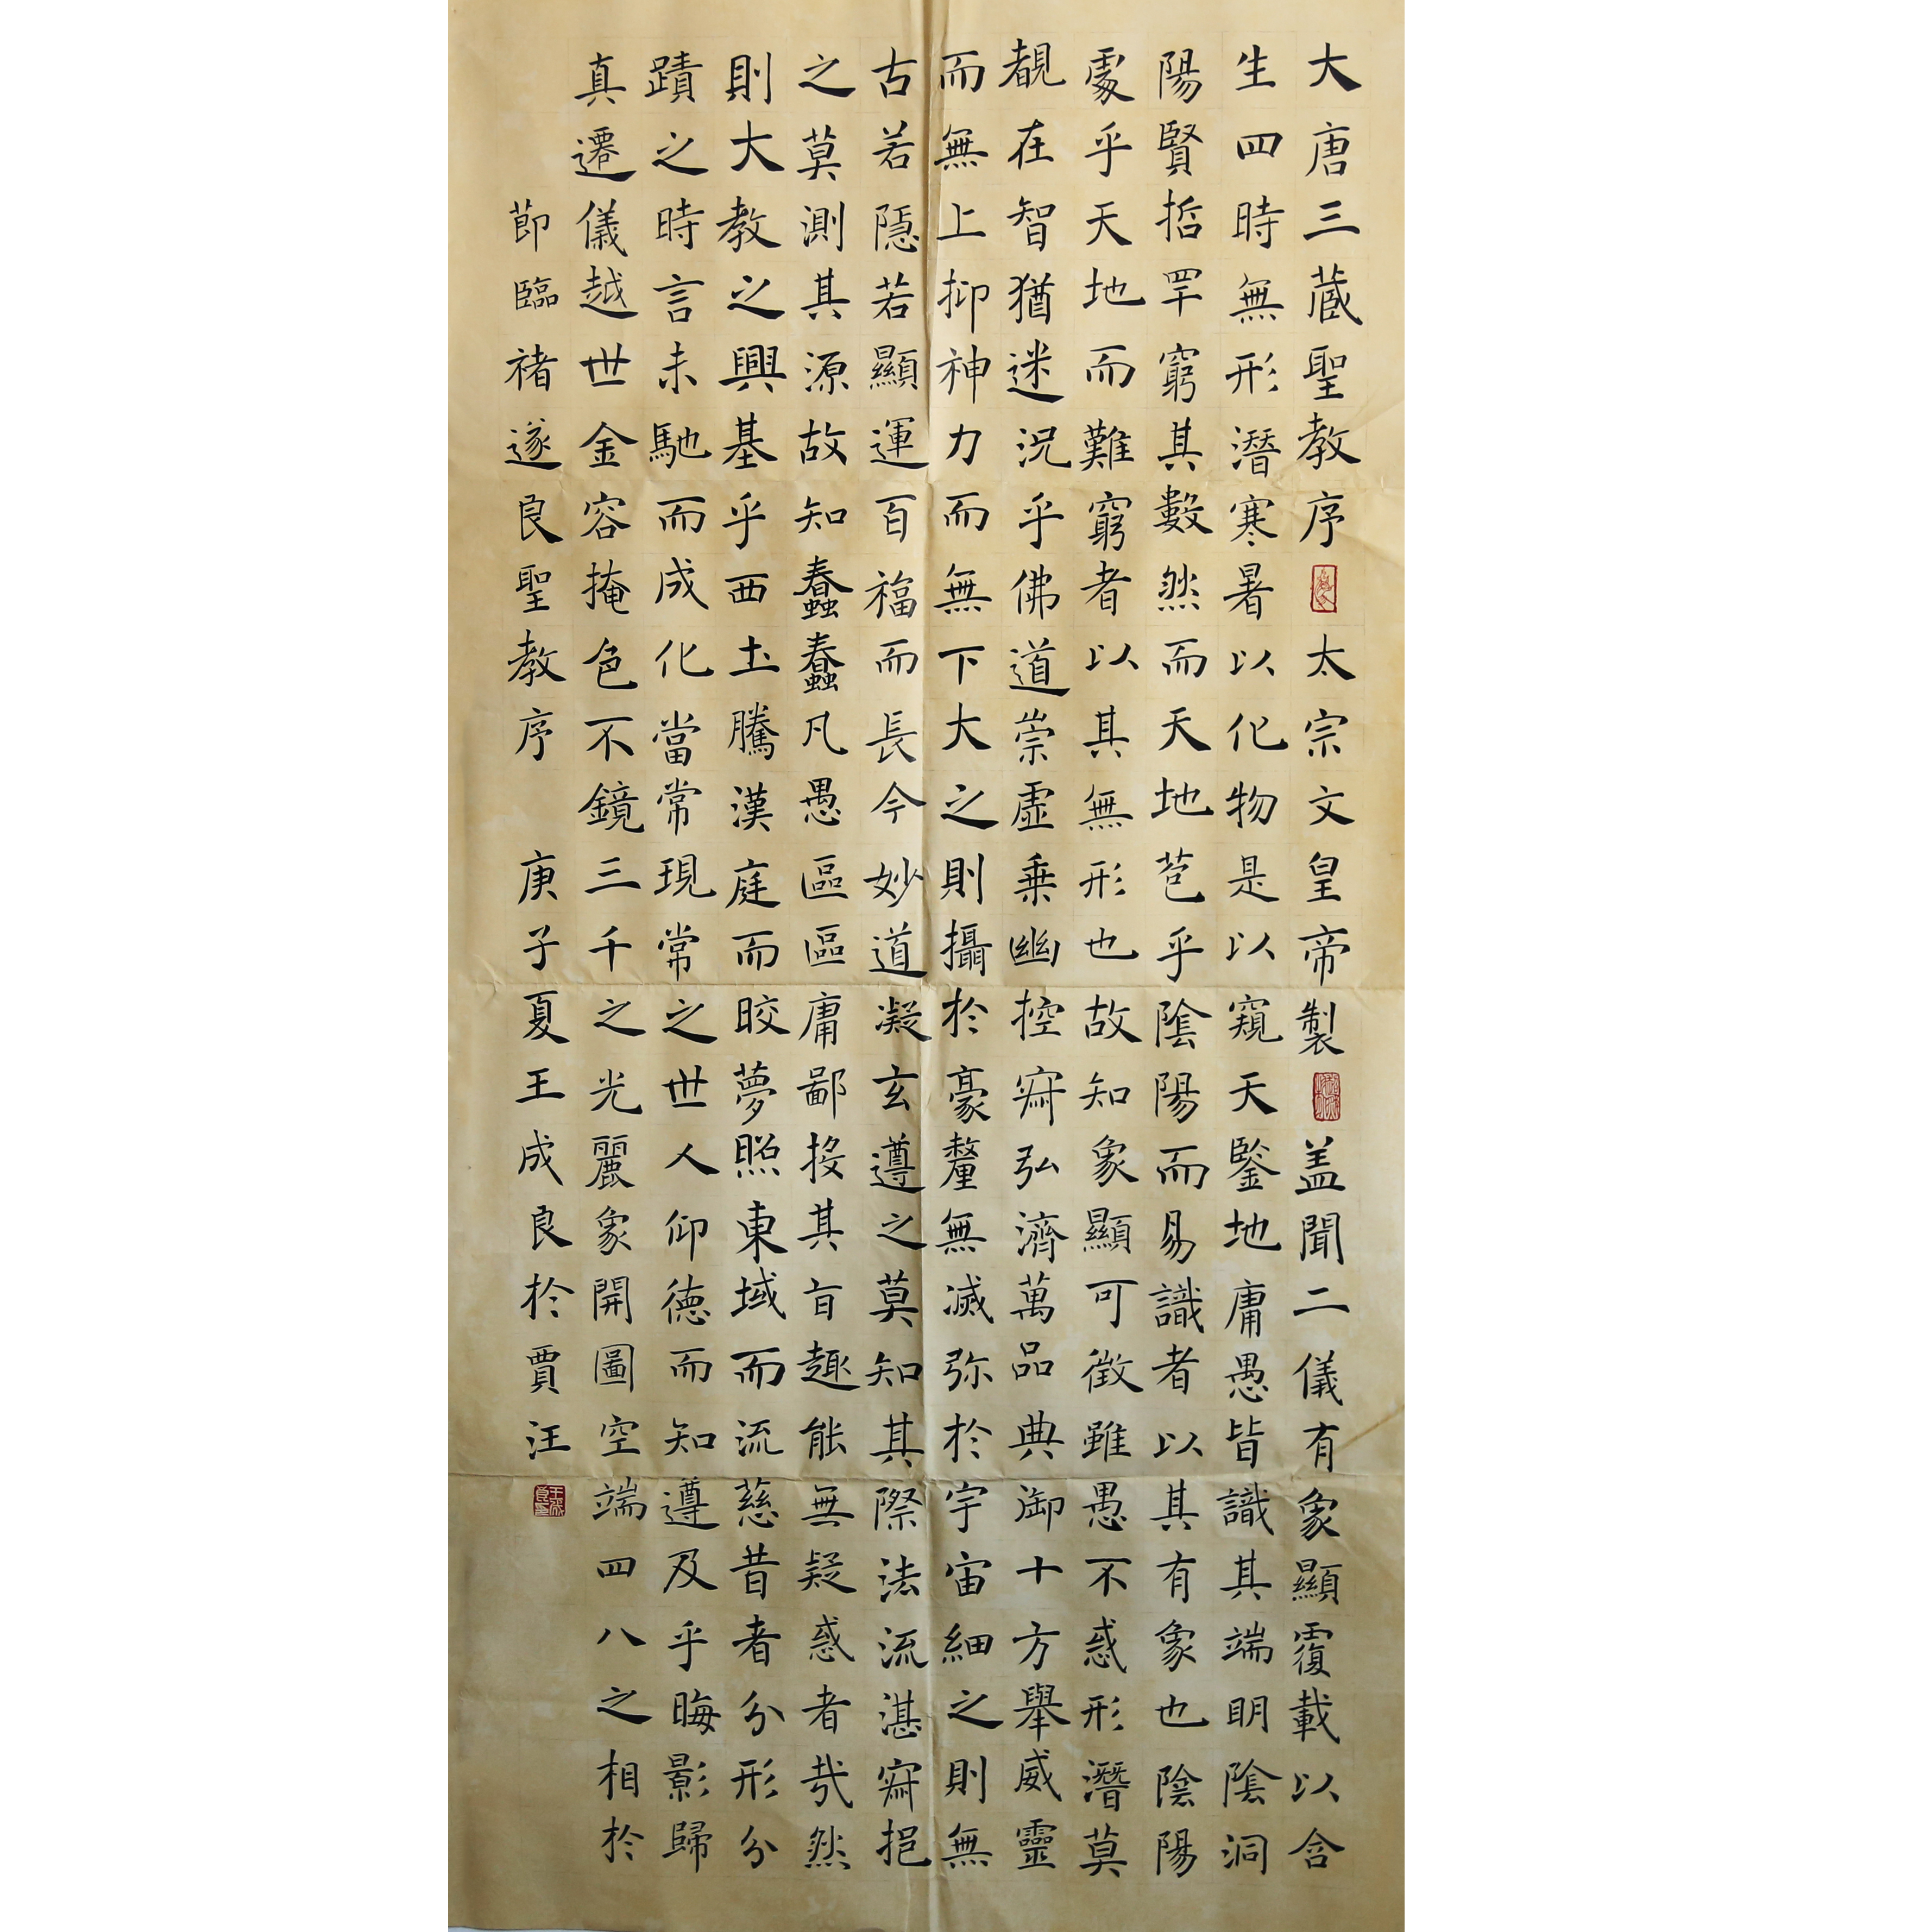 大唐三藏聖教序太宗文皇帝製盖聞二儀有象顯覆載以含
生四時無形潛寒暑以化物是以窺天鑒地庸愚皆識其端明陰洞
陽賢哲罕窮其數然而天地苞乎陰陽而易識者以其有象也陰陽
處乎天地而難窮者以其無形也故知象顯可徵雖愚不惑形潛莫
覩在智猶迷況乎佛道崇虛乗幽控寂弘濟萬品典御十方舉威靈
而無上抑神力而無下大之則攝於豪釐無滅弥於宇宙細之則無
古若隱若顯運百福而長今妙道凝玄遵之莫知其際法流湛寂挹
之莫測其源故知蠢蠢凡愚區區庸鄙投其旨趣能無疑惑者哉然
則大教之興基乎西土騰漢庭而皎夢照東域而流慈昔者分形分
蹟之時言未馳而成化當常現常之世人仰德而知遵及乎晦影歸
真遷儀越世金容掩色不鏡三千之光麗象開圖空端四八之相於
節臨褚遂良聖教序 庚子夏王成良於賈汪
王成良印